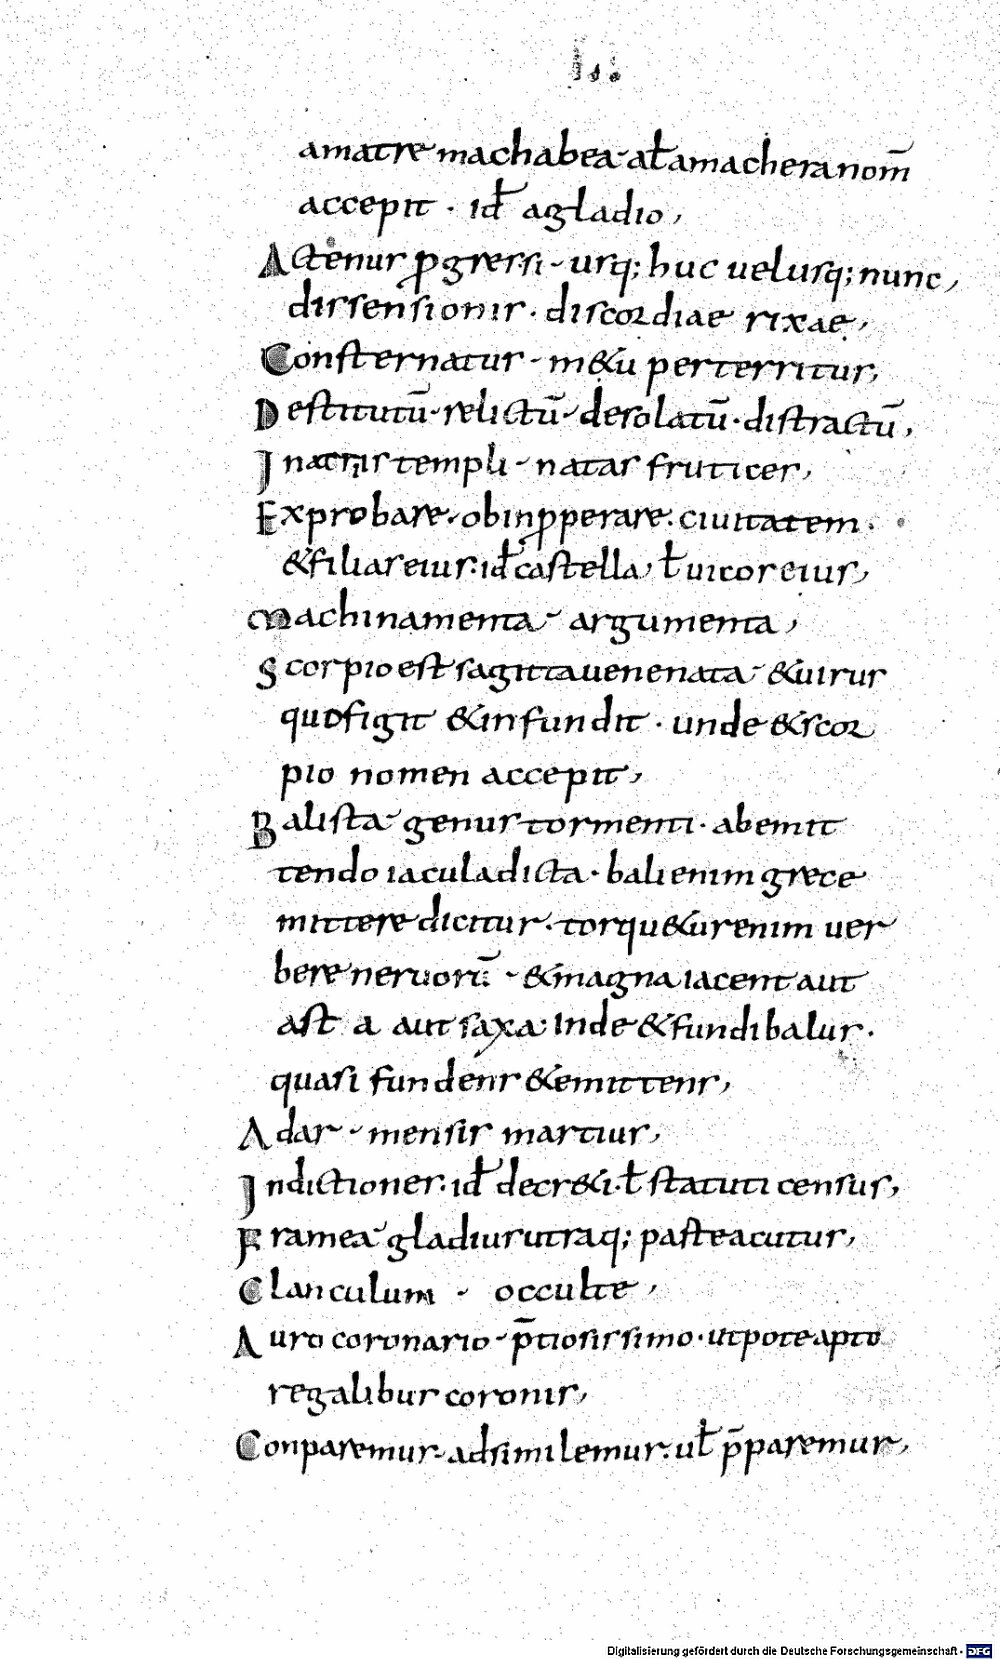 amatre machabea· at̄ amachera nom̄
accepit · id̄ agladio,
Actenus progressi · usq; huc uel usq; nunc,
dissensionis · discordiae rixae,
Consternatus · metu perterritus,
Destitutū· relictū· desolatū· distractū,
In acris templi · natas frutices,
Exprobare· obinproperare· ciuitatem ·
& filias eius· id̄ castella, t̄ uicos eius,
Machinamenta· argumenta,
Scorpio est sagitta uenenata· & uirus
quo figit & infundit · unde & scor
pio nomen accepit,
Balista· genus tormenti· abemit
tendo iacula dicta· bali enim grece
mittere dicitur· torqu&ur enim uer
bere neruorū · & magna iacent aut
ast a aut saxa· Inde & fundibalus·
quasi fundens & emittens,
Adar · mensis martius,
Indictiones· id̄ decr&i· t̄ statuti census,
Framea· gladius utraq; parte acutus,
Clanculum · occulte,
Auro coronario · p̄tiosissimo· utpote apto
regalibus coronis,
Conparemus· adsimilemus· ut̄ p̄paremus,
Digitalisierung gefördert durch die Deutsche Forschungsgemeinschaft · DFG